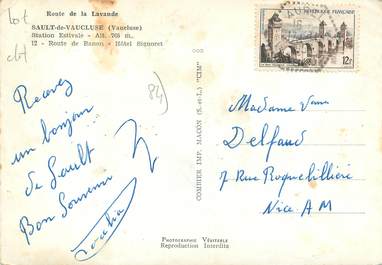 lot
Route de la Lavande
SAULT-de-VAUCLUSE (Vaucluse)
Station Estivale - Alt. 765 m.
12 - Route de Banon - Hôtel Signoret
84)
Recevez
un bonjour
de Sault
Bon Souvenir
COMBIER IMP. MACON (S.-et-L.) "CIM"
PHOTOGRAPHIE VÉRITABLE
Reproduction Interdite
RÉPUBLIQUE FRANÇAISE
12F
Madame
Delfaud
7 Rue Roquebillière
Nice. A M